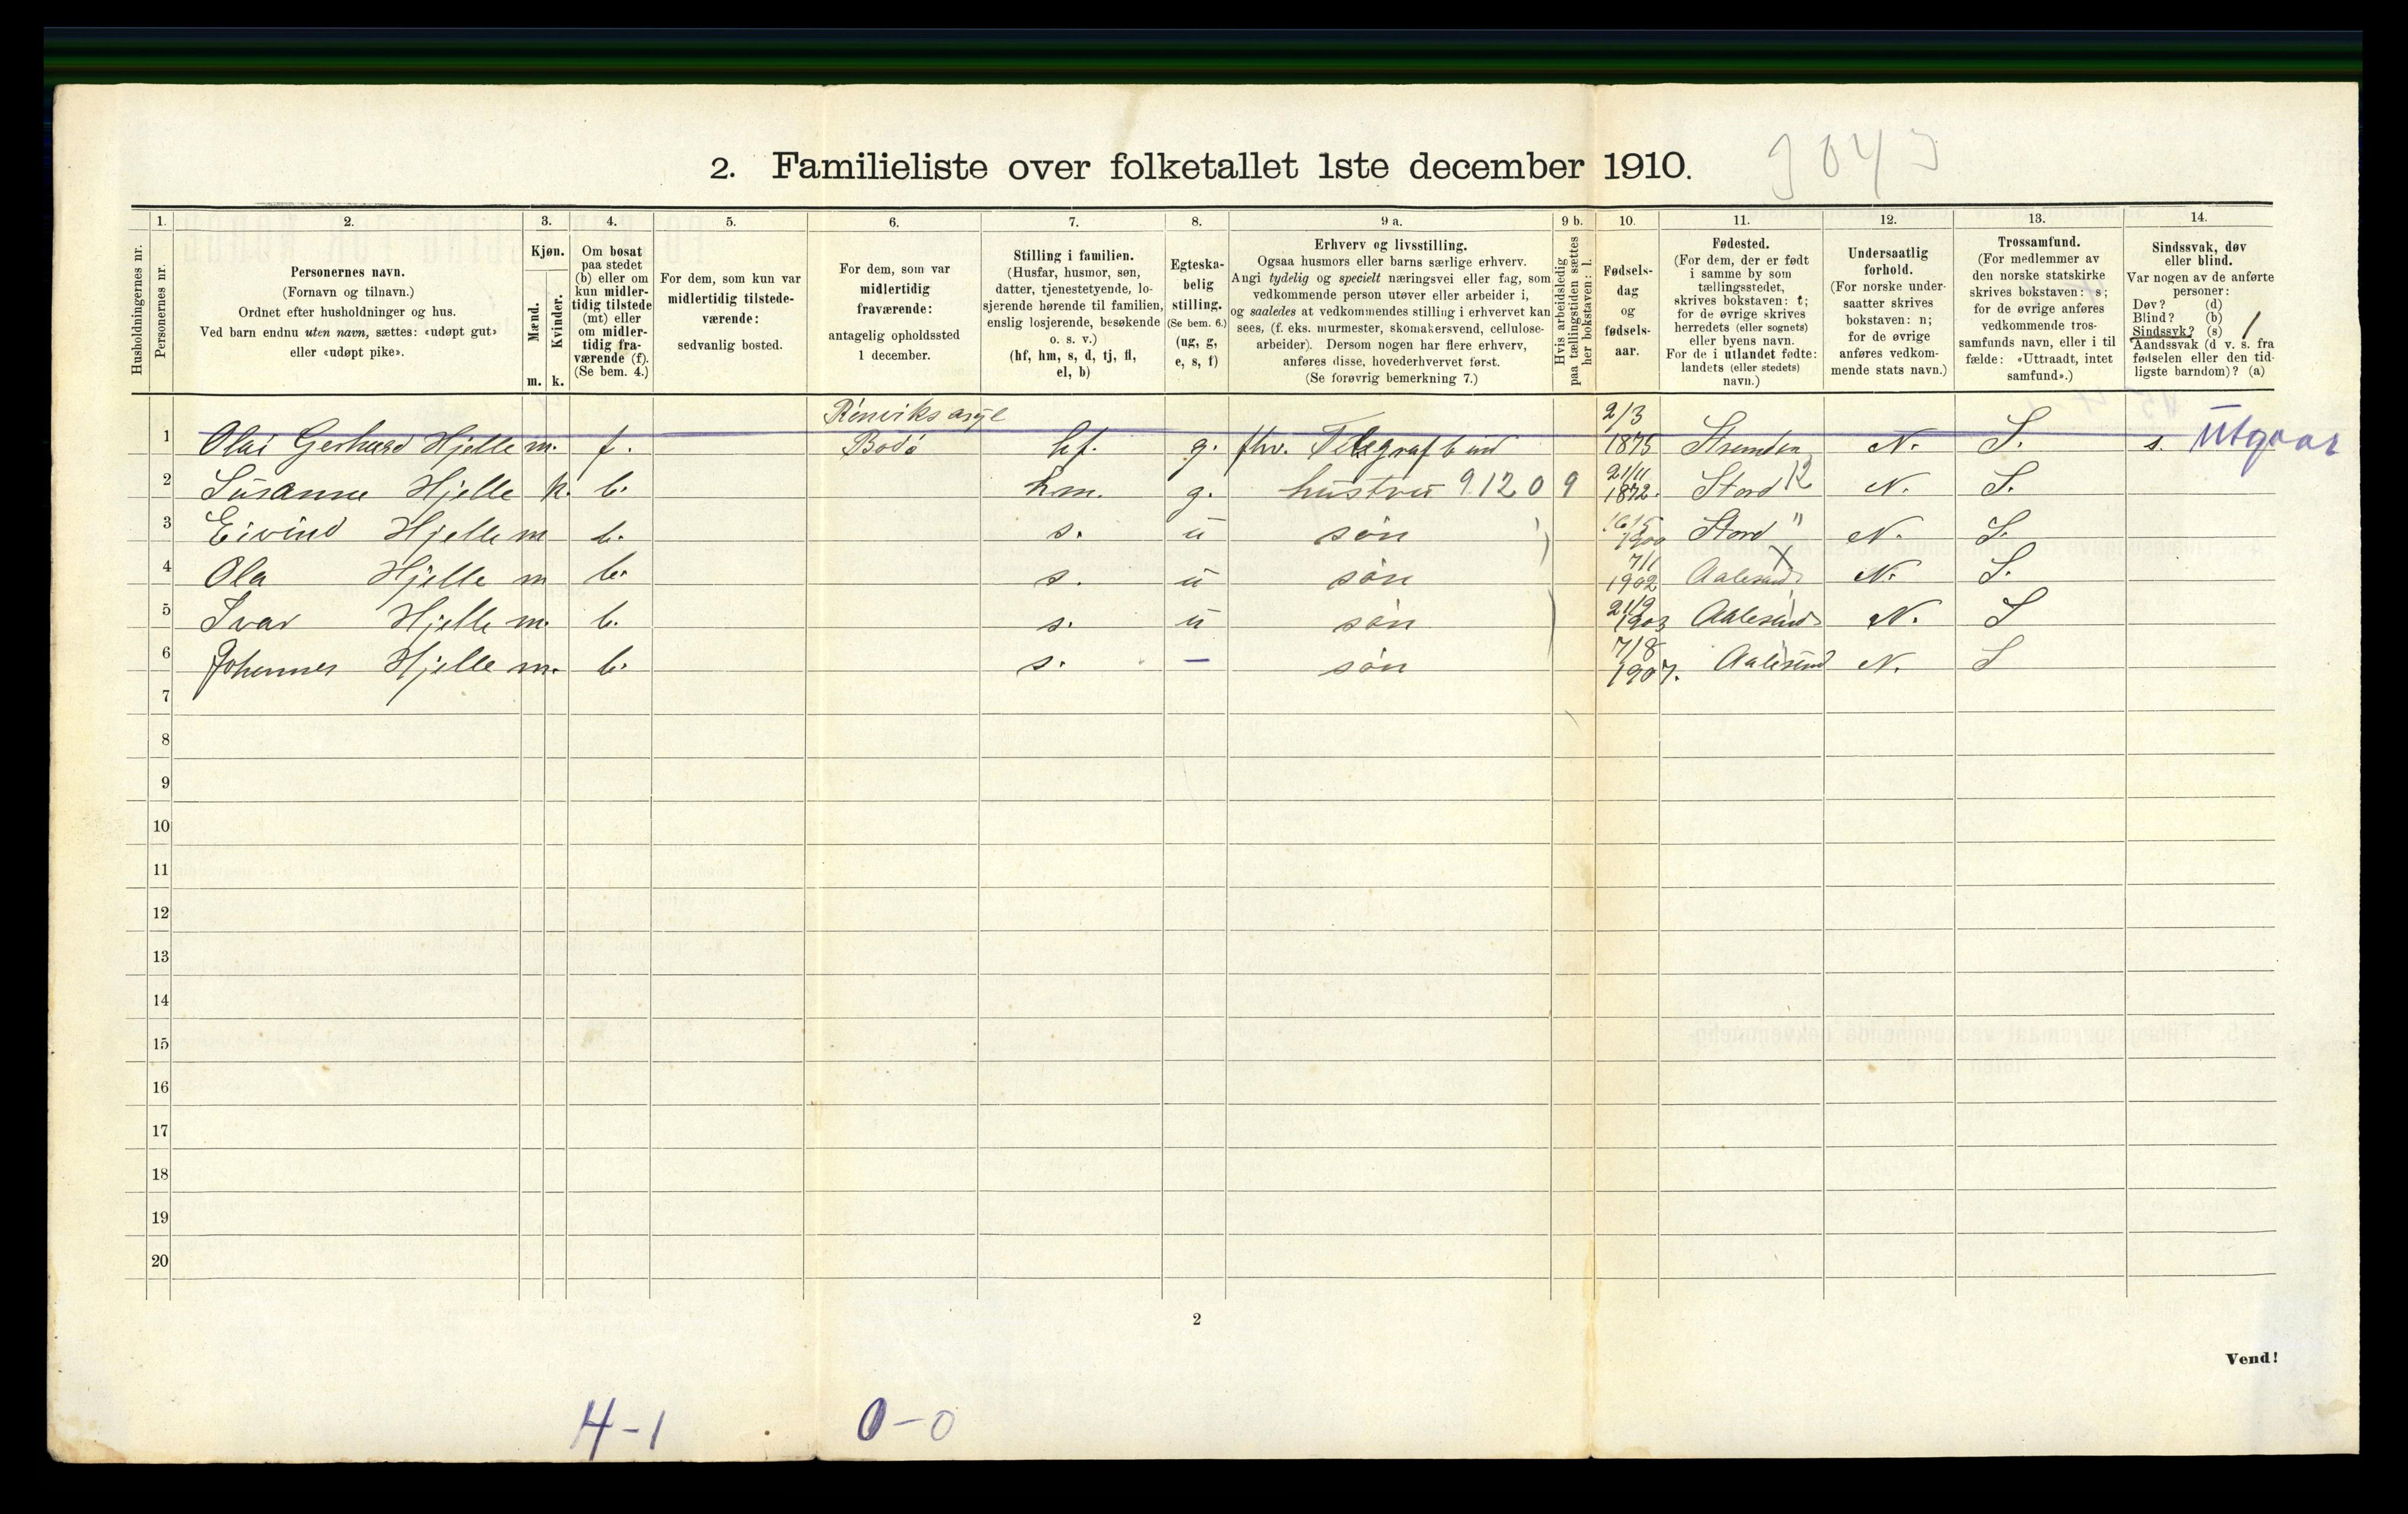 2. Familieliste over folketallet 1ste december 1910.
1. 2. 3. 4. 5. 6. 7. 8. 9 a. 9 b. 10. 11. 12. 13. 14.
Husholdningernes nr.
Personernes nr.
Personernes navn.
(Fornavn og tilnavn.)
Ordnet efter husholdninger og hus.
Ved barn endnu uten navn, sættes: «udøpt gut»
eller «udøpt pike».
Kjøn.
Mænd.
Kvinder.
m. k.
Om bosat
paa stedet
(b) eller om
kun midler-
tidig tilstede
(mt) eller
om midler-
tidig fra-
værende (f).
(Se bem. 4.)
For dem, som kun var
midlertidig tilstede-
værende:
sedvanlig bosted.
For dem, som var
midlertidig
fraværende:
antagelig opholdssted
1 december.
Stilling i familien.
(Husfar, husmor, søn,
datter, tjenestetyende, lo-
sjerende hørende til familien,
enslig losjerende, besøkende
o. s. v.)
(hf, hm, s, d, tj, fl,
el, b)
Egteska-
belig
stilling.
(Se bem. 6.)
(ug, g,
e, s, f)
Erhverv og livsstilling.
Ogsaa husmors eller barns særlige erhverv.
Angi tydelig og specielt næringsvei eller fag, som
vedkommende person utøver eller arbeider i,
og saaledes at vedkommendes stilling i erhvervet kan
sees, (f. eks. murmester, skomakersvend, cellulose-
arbeider). Dersom nogen har flere erhverv,
anføres disse, hovederhvervet først.
(Se forøvrig bemerkning 7.)
Hvis arbeidsledig
paa tællingstiden sættes
her bokstaven: l.
Fødsels-
dag
og
fødsels-
aar.
Fødested.
(For dem, der er født
i samme by som
tællingsstedet,
skrives bokstaven: t;
for de øvrige skrives
herredets (eller sognets)
eller byens navn.
For de i utlandet fødte:
landets (eller stedets)
navn.)
Undersaatlig
forhold.
(For norske under-
saatter skrives
bokstaven: n;
for de øvrige
anføres vedkom-
mende stats navn.)
Trossamfund.
(For medlemmer av
den norske statskirke
skrives bokstaven: s;
for de øvrige anføres
vedkommende tros-
samfunds navn, eller i til
fælde: «Uttraadt, intet
samfund».)
Sindssvak, døv
eller blind.
Var nogen av de anførte
personer:
Døv? (d)
Blind? (b)
Sindssyk? (s) 1
Aandssvak (d v. s. fra
fødselen eller den tid-
ligste barndom)? (a)
1 Olai Gerhard Hjelle m. f. Rönviks asyl Bodø hf. g. fhv. Telegrafbud 2/3 1875 N. S. s. Utgaar
2 Susanne Hjelle k. b. hm. g. hustru 9120 9 21/11 1872. Stord 12 N. S.
3 Eivind Hjelle m b. s. u søn 16/5 1900 Stord " N. S.
4 Ola Hjelle m b. s. u søn 7/1 1902 Aalesund X N. S.
5 Ivar Hjelle m. b. s. u søn 21/2 1903 Aalesund N. S
6 Johannes Hjelle m. b. s. – søn 7/8 1907. Aalesund N. S
7
8
9
10
11
12
13
14
15
16
17
18
19
20
2
Vend!
4-1 0-0